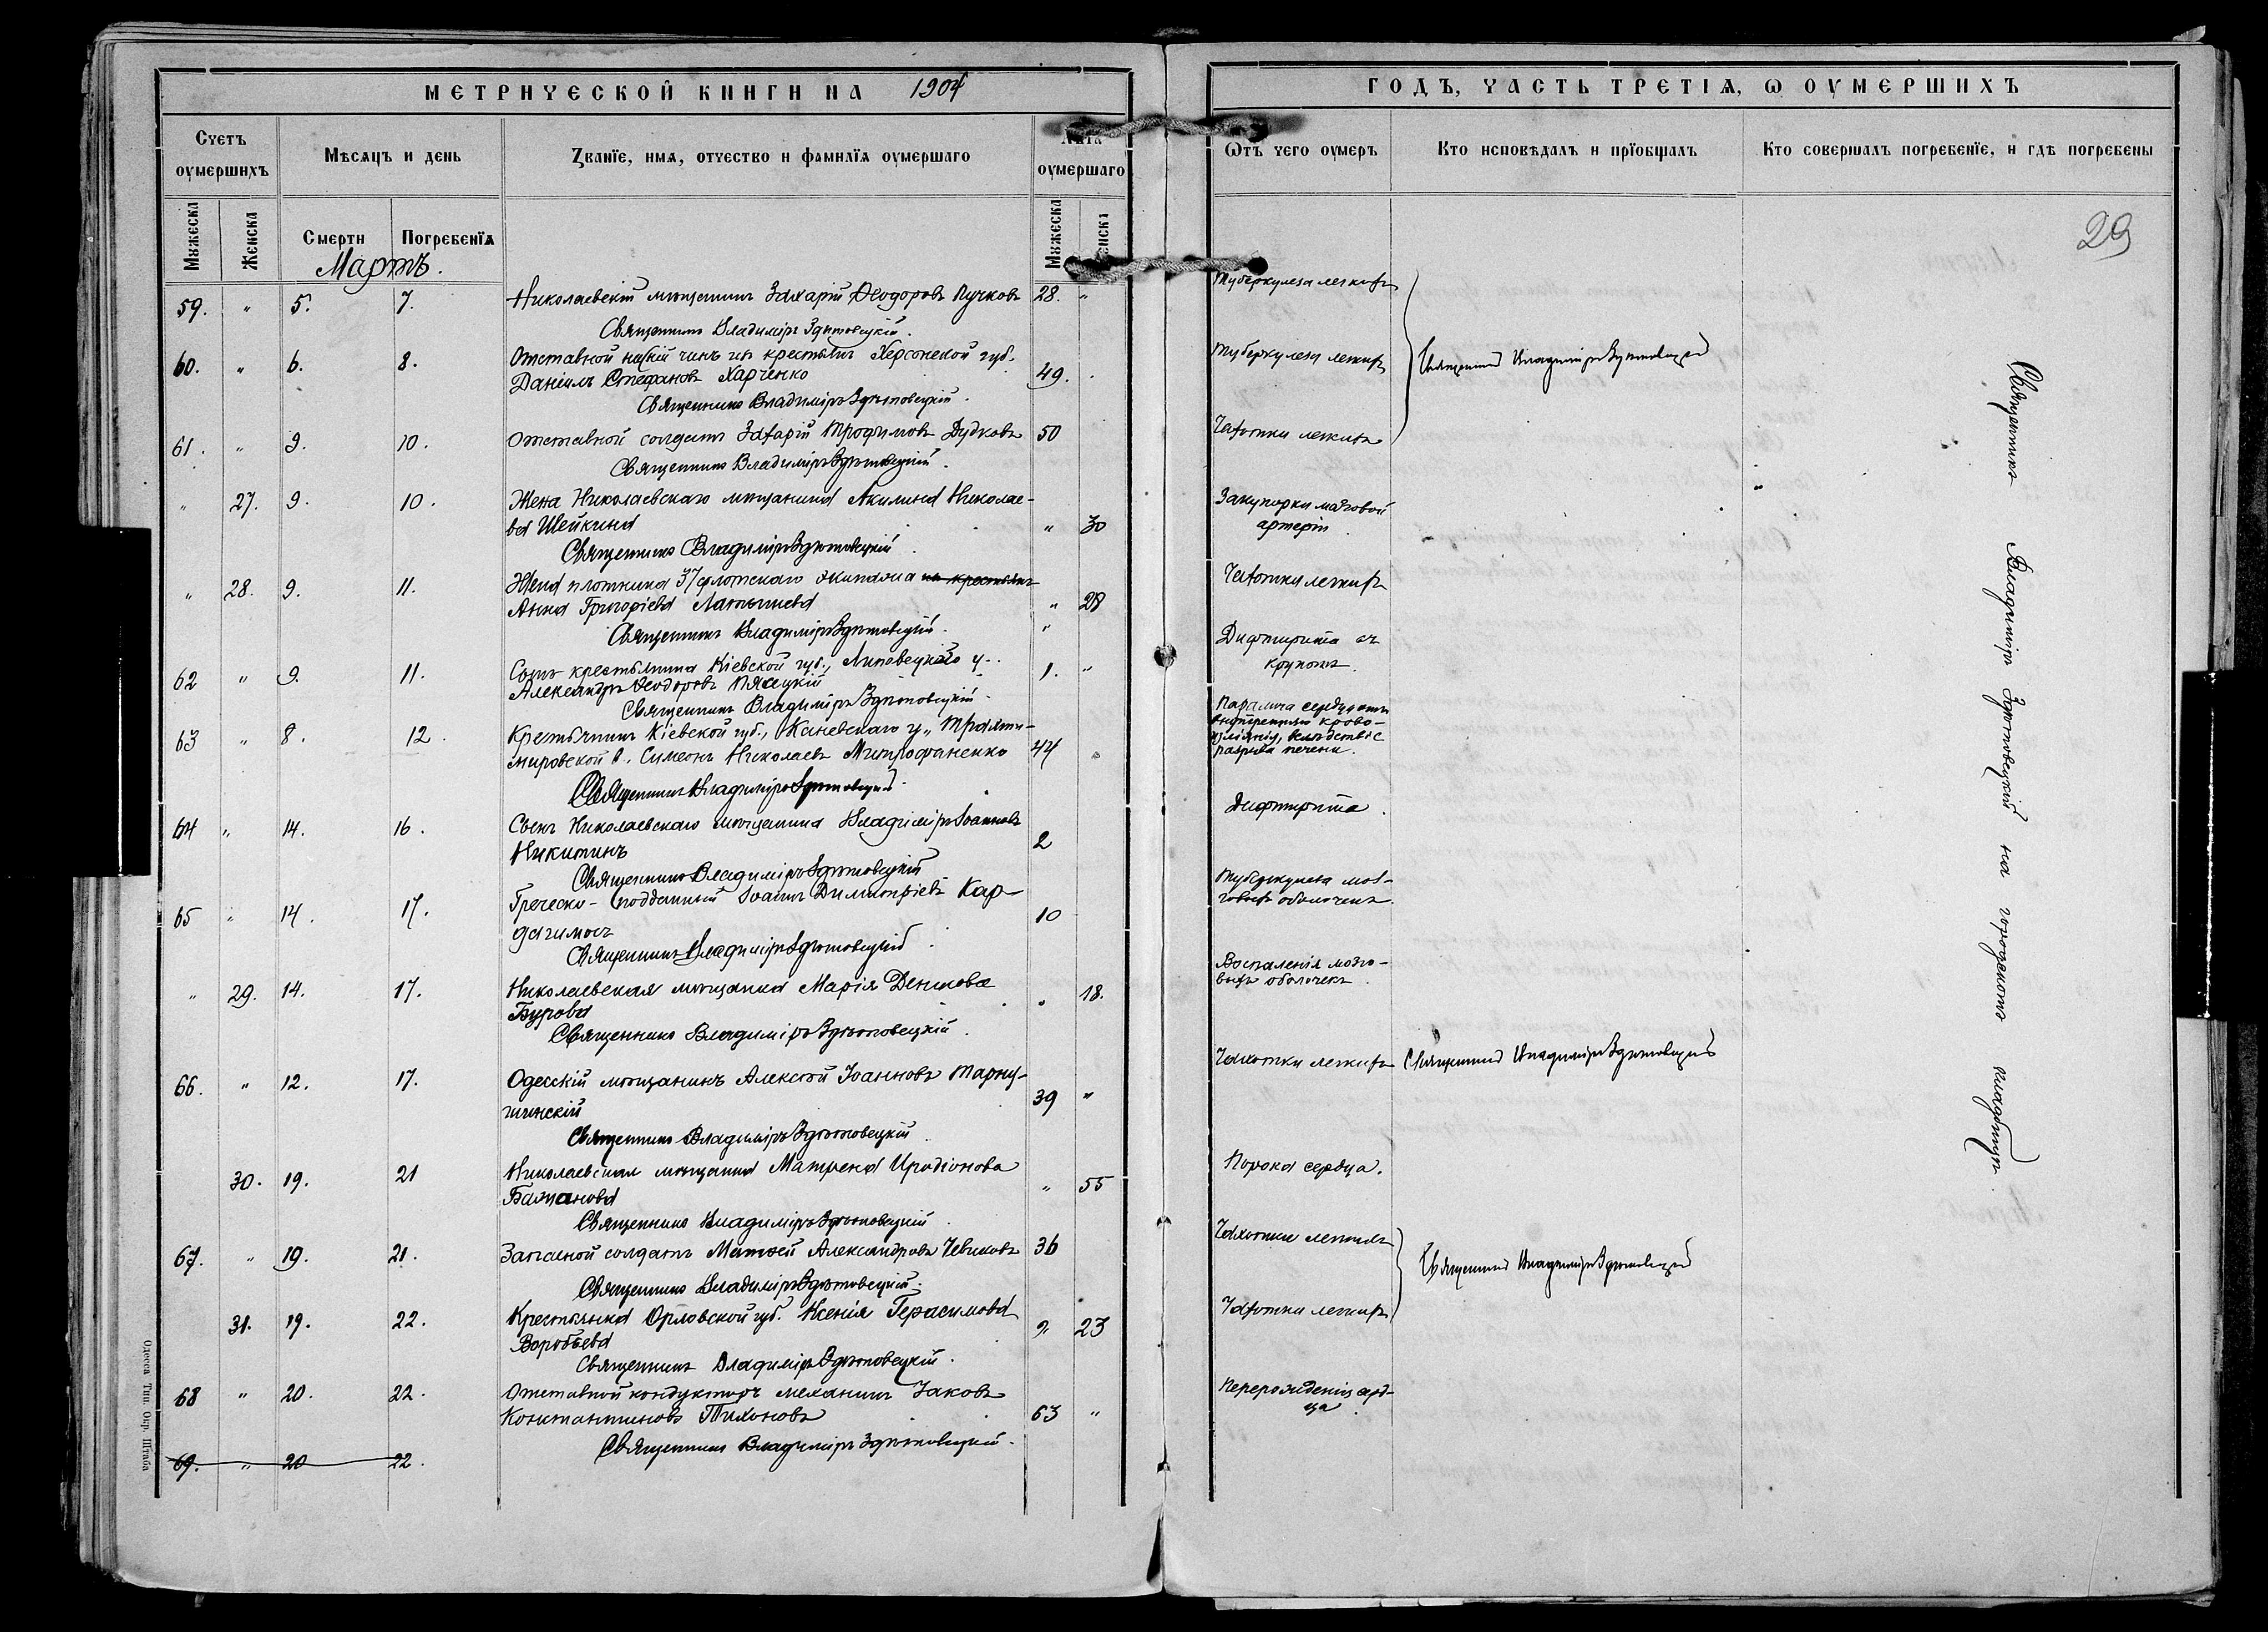 МЕТРИЧЕСКОЙ КНИГИ НА 1904
Счетъ оумершихъ
Мѣсяцъ и день
Званїе, имя, отчество и фамилїя оумершаго
Лѣта оумершаго
Мужеска
Женска
Смерти
Погребенїя
Мужеска
Женска
Мартъ.
59. " 5. 7. Николаевскій мѣщанинъ Захарій Ѳеодоровъ Пучковъ 28. "
Священникъ Владиміръ Здѣтовецкій.
60. " 6. 8. Отставной нижній чинъ изъ крестьянъ Херсонской губ.
Даніилъ Стефановъ Харченко 49.
Священникъ Владиміръ Здѣтовецкій.
61. " 9. 10. Отставной солдатъ Захарій Трофимовъ Дудковъ 50
Священникъ Владиміръ Здѣтовецкій.
" 27. 9. 10. Жена Николаевскаго мѣщанина Акилина Николае-
ва Шейкина " 30
Священникъ Владиміръ Здѣтовецкій.
" 28. 9. 11. Жена плотника 37 флотскаго экипажа изъ крестьянъ
Анна Григоріева Латышева " 28
Священникъ Владиміръ Здѣтовецкій.
62 " 9. 11. Сынъ крестьянина Кіевской губ., Липовецкаго у.
Александръ Ѳеодоровъ Пясецкій 1. "
Священникъ Владиміръ Здѣтовецкій.
63 " 8. 12. Крестьянинъ Кіевской губ., Каневскаго у.,
в. Симеонъ Николаевъ Митрофаненко 44
Священникъ Владиміръ Здѣтовецкій.
64 " 14. 16. Сынъ Николаевскаго мѣщанина Владиміръ Іоанновъ
Никитинъ 2
Священникъ Владиміръ Здѣтовецкій
65 " 14. 17. Греческо-подданный Іоаннъ Димитріевъ Кар-
10
Священникъ Владиміръ Здѣтовецкій.
" 29. 14. 17. Николаевская мѣщанка Марія Денисова
Бурова " 18.
Священникъ Владиміръ Здѣтовецкій.
66. " 12. 17. Одесскій мѣщанинъ Алексѣй Іоанновъ
39 "
Священникъ Владиміръ Здѣтовецкій.
30. 19. 21 Николаевская мѣщанка Матрена Иродіонова
" 55
Священникъ Владиміръ Здѣтовецкій.
67. " 19. 21. Запасной солдатъ Матѳей Александровъ 36
Священникъ Владиміръ Здѣтовецкій.
31. 19. 22. Крестьянка Орловской губ. Ксенія Герасимова
Воробьева " 23
Священникъ Владиміръ Здѣтовецкій.
68 " 20. 22. Отставной кондукторъ механикъ Іаковъ
Константиновъ Тихоновъ 63 "
Священникъ Владиміръ Здѣтовецкій.
69. " 20 22.
Одесса Тип. Окр. Штаба
ГОДЪ, ЧАСТЬ ТРЕТІЯ, Ѡ ОУМЕРШИХЪ
Ѿтъ чего оумеръ
Кто исповѣдалъ и прїобщалъ
Кто совершалъ погребенїе, и гдѣ погребены
29
Туберкулеза легкихъ
Туберкулеза легкихъ
Священникъ Владиміръ Здѣтовецкій
Чахотки легкихъ
Закупорки мозговой
артеріи
Чахотки легкихъ
Дифтерита съ
крупомъ.
Паралича сердца отъ
внутренняго крово-
изліянія, вслѣдствіе
разрыва печени.
Дифтерита.
Туберкулеза моз-
говыхъ оболочекъ.
Воспаленія мозго-
выхъ оболочекъ.
Чахотки легкихъ Священникъ Владиміръ Здѣтовецкій
Порока сердца.
Чахотки легкихъ
Священникъ Владиміръ Здѣтовецкій
Чахотки легкихъ
Перерожденія серд-
ца.
Священникъ Владиміръ Здѣтовецкій на городскомъ кладбищѣ.